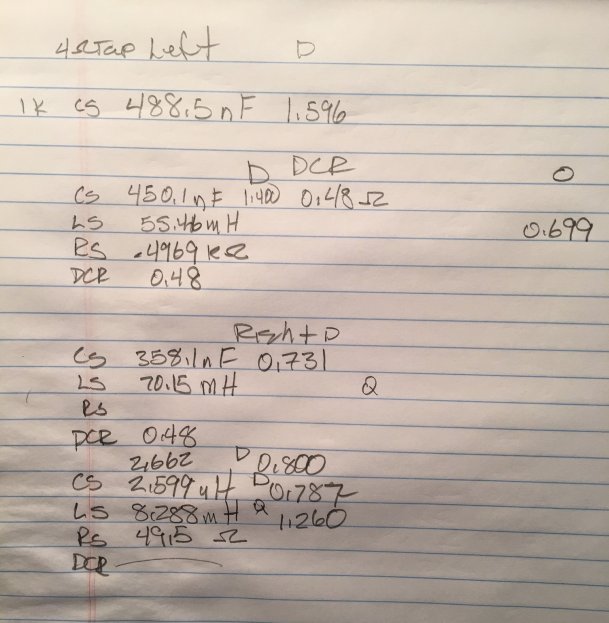 4ΩTap Left D
1K CS 488.5nF 1.596
D DCR O
CS 450.1nF 1.400 0.48Ω
LS 55.46mH 0.699
RS .4969 KΩ
DCR 0.48
Right D
CS 358.1nF 0.731
LS 70.15mH Q
RS
DCR 0.48
2.662 D 0.800
CS 2.599uH D 0.787
LS 8.288mH Q 1.260
RS 49.5 Ω
DCR